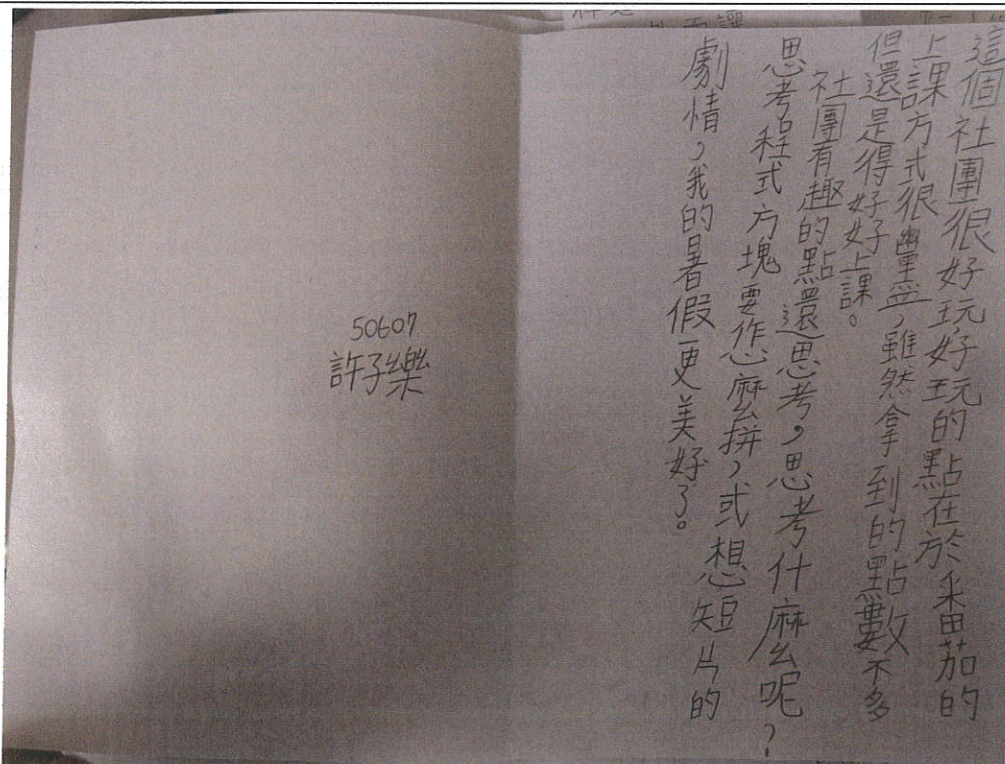 這個社團很好玩,好玩的點在於番茄的
上課方式很豐盛,雖然拿到的點數不多
但還是得好好上課。
社團有趣的點還思考,思考什麼呢?
思考程式方塊要作怎麼拼,或想短片的
劇情,我的暑假更美好了。
50607
許子樂